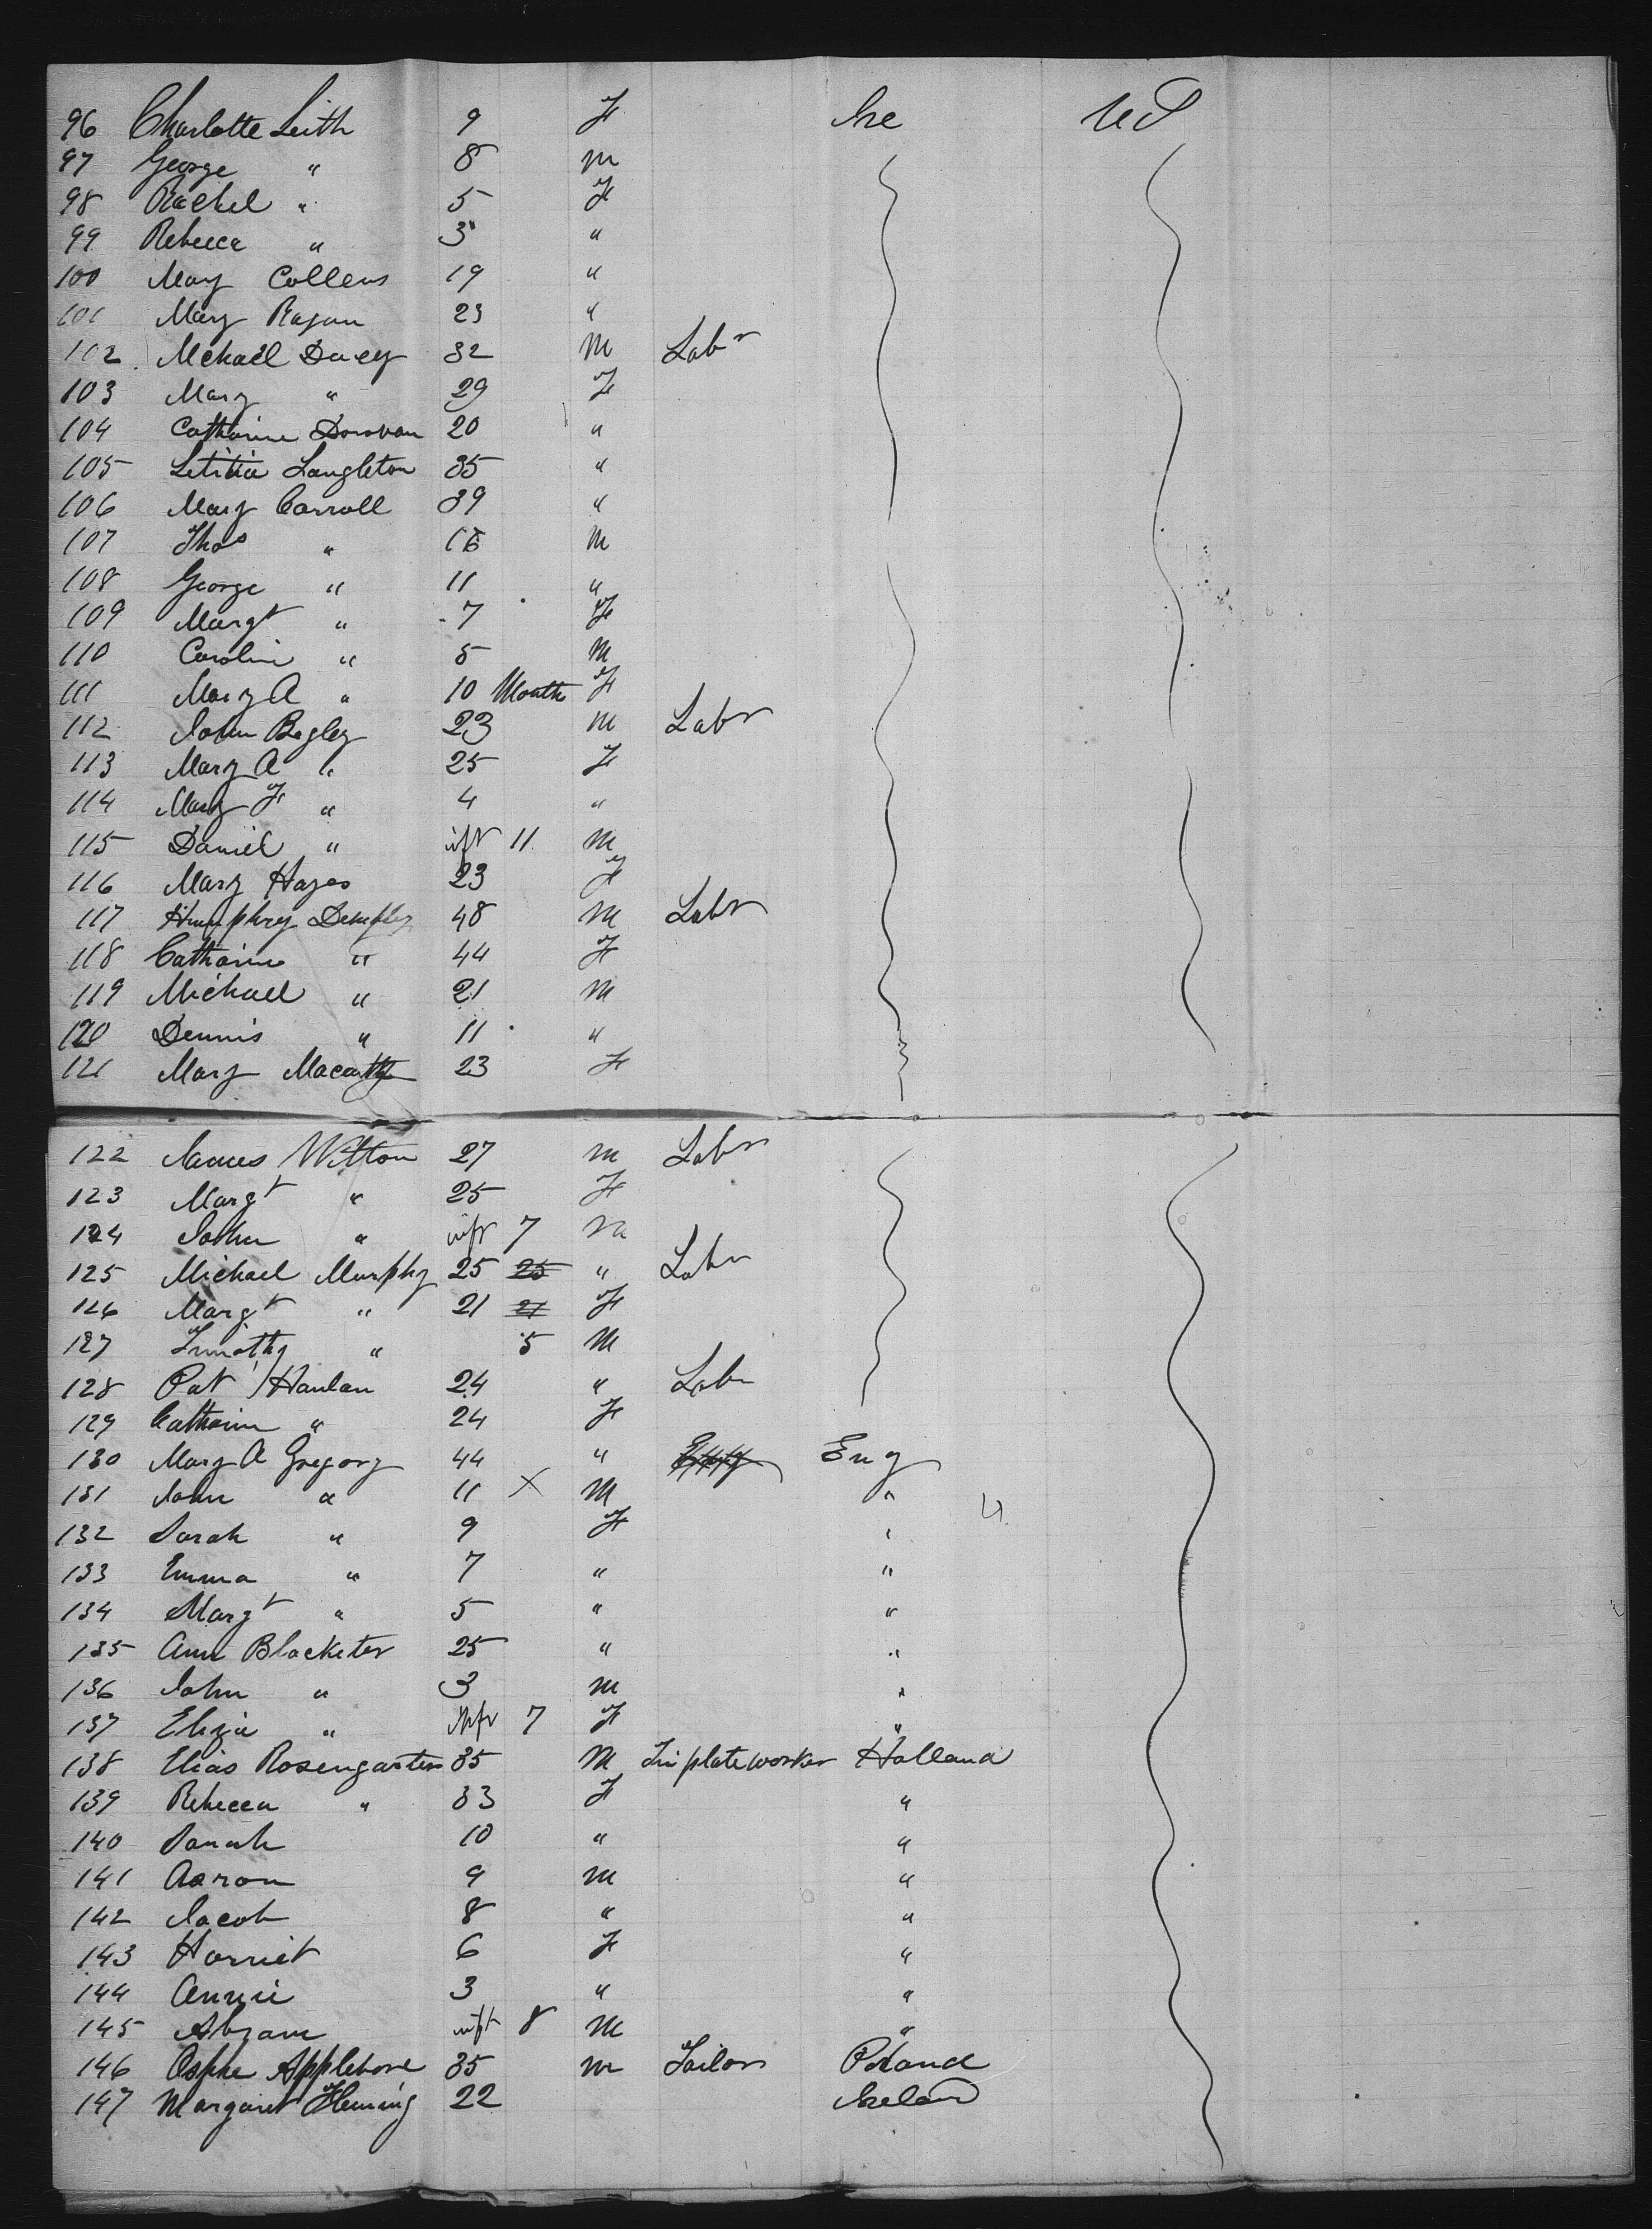 96 Charlotte Leith 9 F Ire US
97 George " 8 M
98 Rachel " 5 F
99 Rebecca " 3 "
100 Mary Collens 19 "
101 Mary Ragan 23 "
102 Michael Davey 32 M Labr
103 Mary " 29 F
104 Catharine Donovan 20 "
105 Letitia Langleton 35 "
106 Mary Carroll 39 "
107 Thos " M
108 George " 11 "
109 Margt " 7 F
110 Carolin " 5 M
111 Mary A " 10 Month F
112 John Begley 23 M Labr
113 Mary A " 25 F
114 Mary F " 4 "
115 Daniel " inft 11 M
116 Mary Hayes 23 F
117 Humphrey Dempsey 48 M Labr
118 Catharine " 44 F
119 Michael " 21 M
120 Dennis " 11 "
121 Mary 23 F
122 James Wilton 27 M Labr
123 Margt " 25 F
124 John " inft 7 M
125 Michael Murphy 25 25 " Labr
126 Margt " 21 21 F
127 Timothy " 5 M
128 Pat Hanlan 24 " Labr
129 Catharin " 24 F
130 Mary A Gregory 44 " Eng
131 John " 11 X M "
132 Sarah " 9 F "
133 Emma " 7 " "
134 Margt " 5 " "
135 Ann Blacketer 25 " "
136 John " 3 M "
137 Eliza " Inft 7 F "
138 Elias Rosengarten 35 M Tin plate worker Holland
139 Rebecca " 33 F "
140 Sarah 10 " "
141 Aaron 9 M "
142 Jacob 8 " "
143 Harriet 6 F "
144 Annie 3 " "
145 Abram inft 8 M "
146 Applebone 35 M Tailor Poland
147 Margaret Fleming 22 Ireland